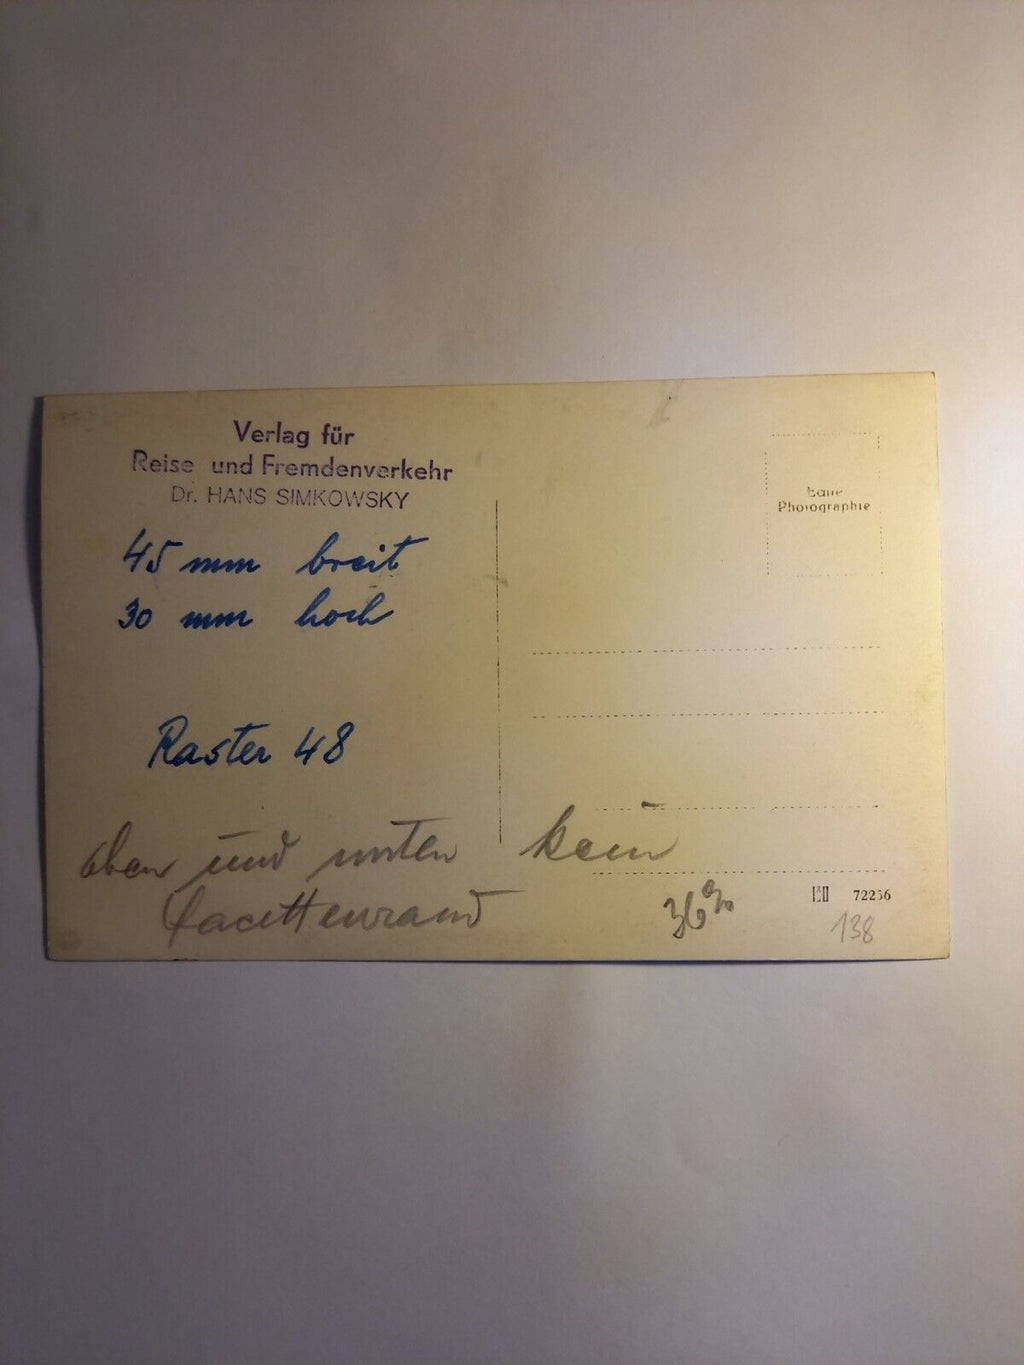 Verlag für
Reise und Fremdenverkehr
Dr. HANS SIMKOWSKY
45 mm breit
30 mm hoch
Raster 48
oben und unten kein
Facettenrand
Photographie
36%
72256
138